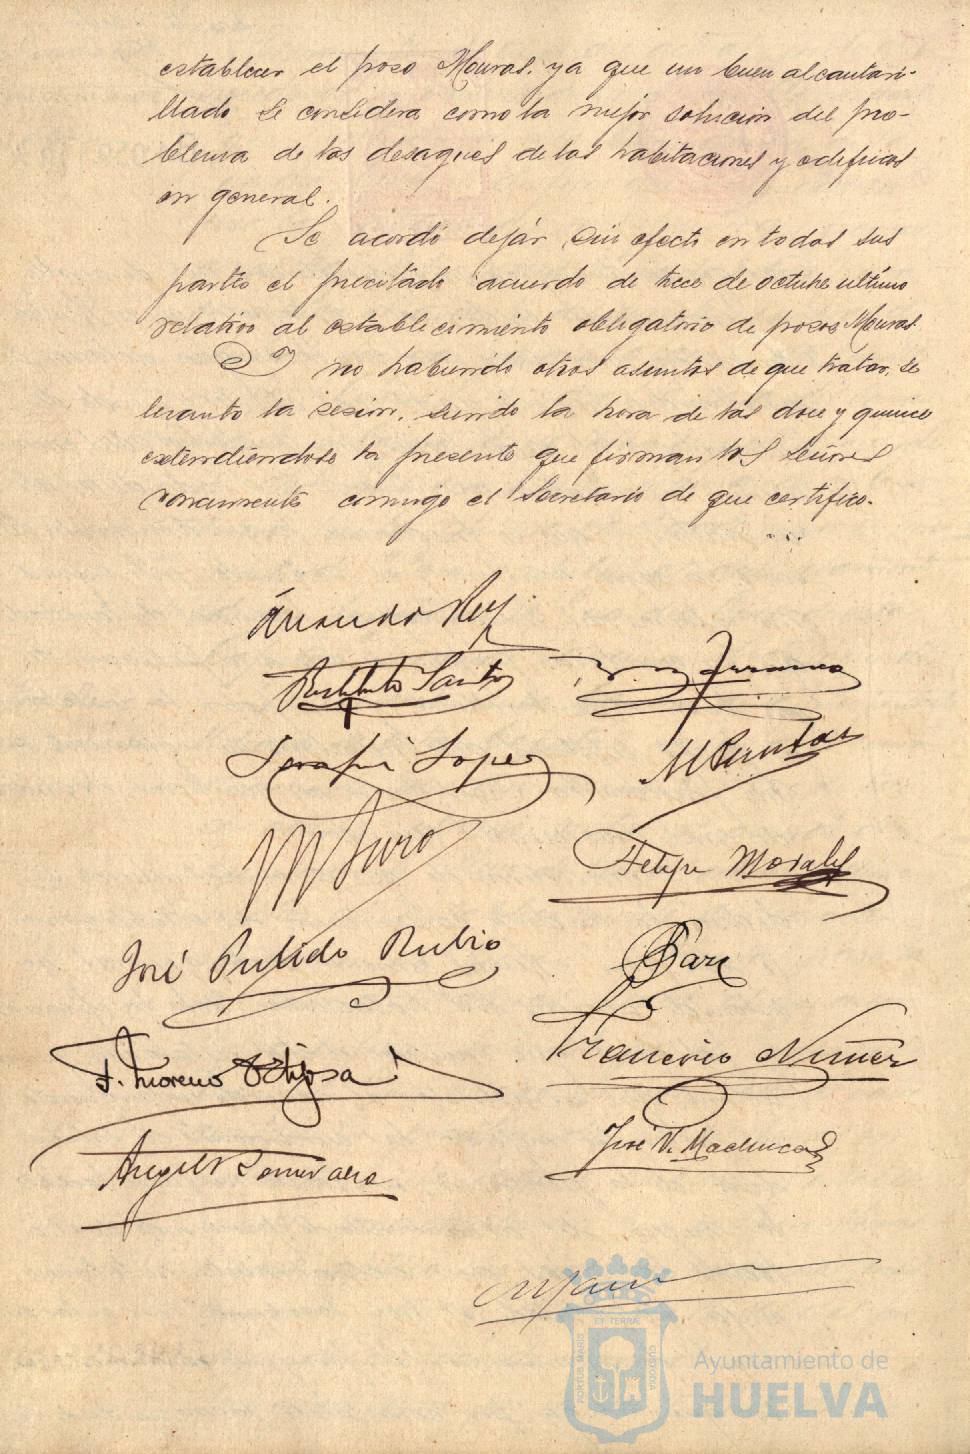 establecer el pozo Mouras, ya que un buen alcantari-
llado se considera como la mejor solución del pro-
blema de los desagües de las habitaciones y edificios
en general.
Se acordó dejár sin efecto en todas sus
partes el precitado acuerdo de trece de octubre último
relativo al establecimiento obligatorio de pozos Mouras.
Y no habiendo otros asuntos de que tratar, se
levanto la sesión, siendo la hora de las doce y quince
extendiendose la presente que firman los Señores
concurrente conmigo el Secretario de que certifico.
Amando Rey
Restituto Santos
Serafín López
M Duro
Felipe Morales
José Pulido Rubio
Francisco Núñez
F. Moreno Ortijosa
José V. Machuca
Angel
PORTUS MARIS
ET TERRÆ
CUSTODIA
Ayuntamiento de
HUELVA